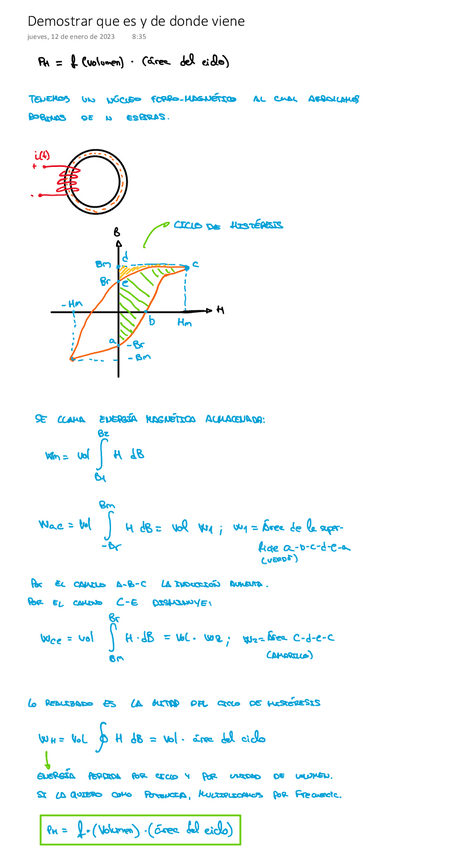 Demostrar que es y de donde viene
jueves, 12 de enero de 2023 8:35
PH = f (volumen) · (área del ciclo)
TENEMOS UN NÚCLEO FERRO-MAGNÉTICO AL CUAL ARROLLAMOS
BOBINAS DE N ESPIRAS.
i(t)
+
-
B
CICLO DE HISTÉRESIS
Bm
d
c
Br
e
-Hm
H
b
Hm
a
-Br
-Bm
SE LLAMA ENERGÍA MAGNÉTICA ALMACENADA:
Wm = vol ∫ B1 B2 H dB
Wac = Vol ∫ -Br Bm H dB = vol W1 ; W1 = área de la super-
ficie a-b-c-d-e-a
(VERDE)
POR EL CAMINO A-B-C LA INDUCCIÓN AUMENTA.
POR EL CAMINO C-E DISMINUYE:
Wce = vol ∫ Bm Br H · dB = vol · W2 ; W2 = área c-d-e-c
(AMARILLO)
LO REALIZADO ES LA MITAD DEL CICLO DE HISTÉRESIS
WH = VOL ∮ H dB = vol · área del ciclo
ENERGÍA PERDIDA POR CICLO Y POR UNIDAD DE VOLUMEN.
SI LA QUIERO COMO POTENCIA, MULTIPLICAMOS POR Frecuencia.
PH = f · (Volumen) · (área del ciclo)